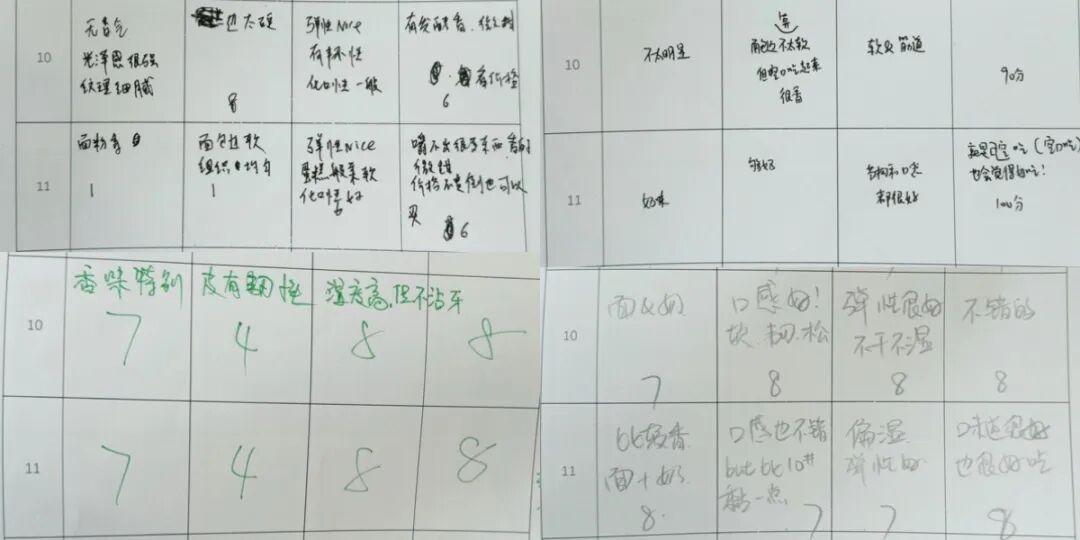 10
无香气
光泽感很强
纹理细腻
也太硬
8
弹性Nice
有韧性
化口性一般
6
11
面粉香
1
面包过软
组织均匀
1
弹性Nice
蛋糕般柔软
化口性好
价格不贵倒也可以
买
6
10
不太明显
面包不太软
但空口吃起来
很香
软且筋道
90分
11
奶味
够好
结构和口感
都很好
也会觉得好吃!
100分
10
香味特别
皮有韧性
湿度高,但不沾牙
7
4
8
8
11
7
4
8
8
10
面&奶
7
口感好!
软.韧.松
8
弹性很好
不干不湿
8
不错的
8
11
bk较香
面+奶.
8
口感也不错
but bk 10#
黏一点
7
偏湿
弹性好
7
口味也很好
也很好吃
8